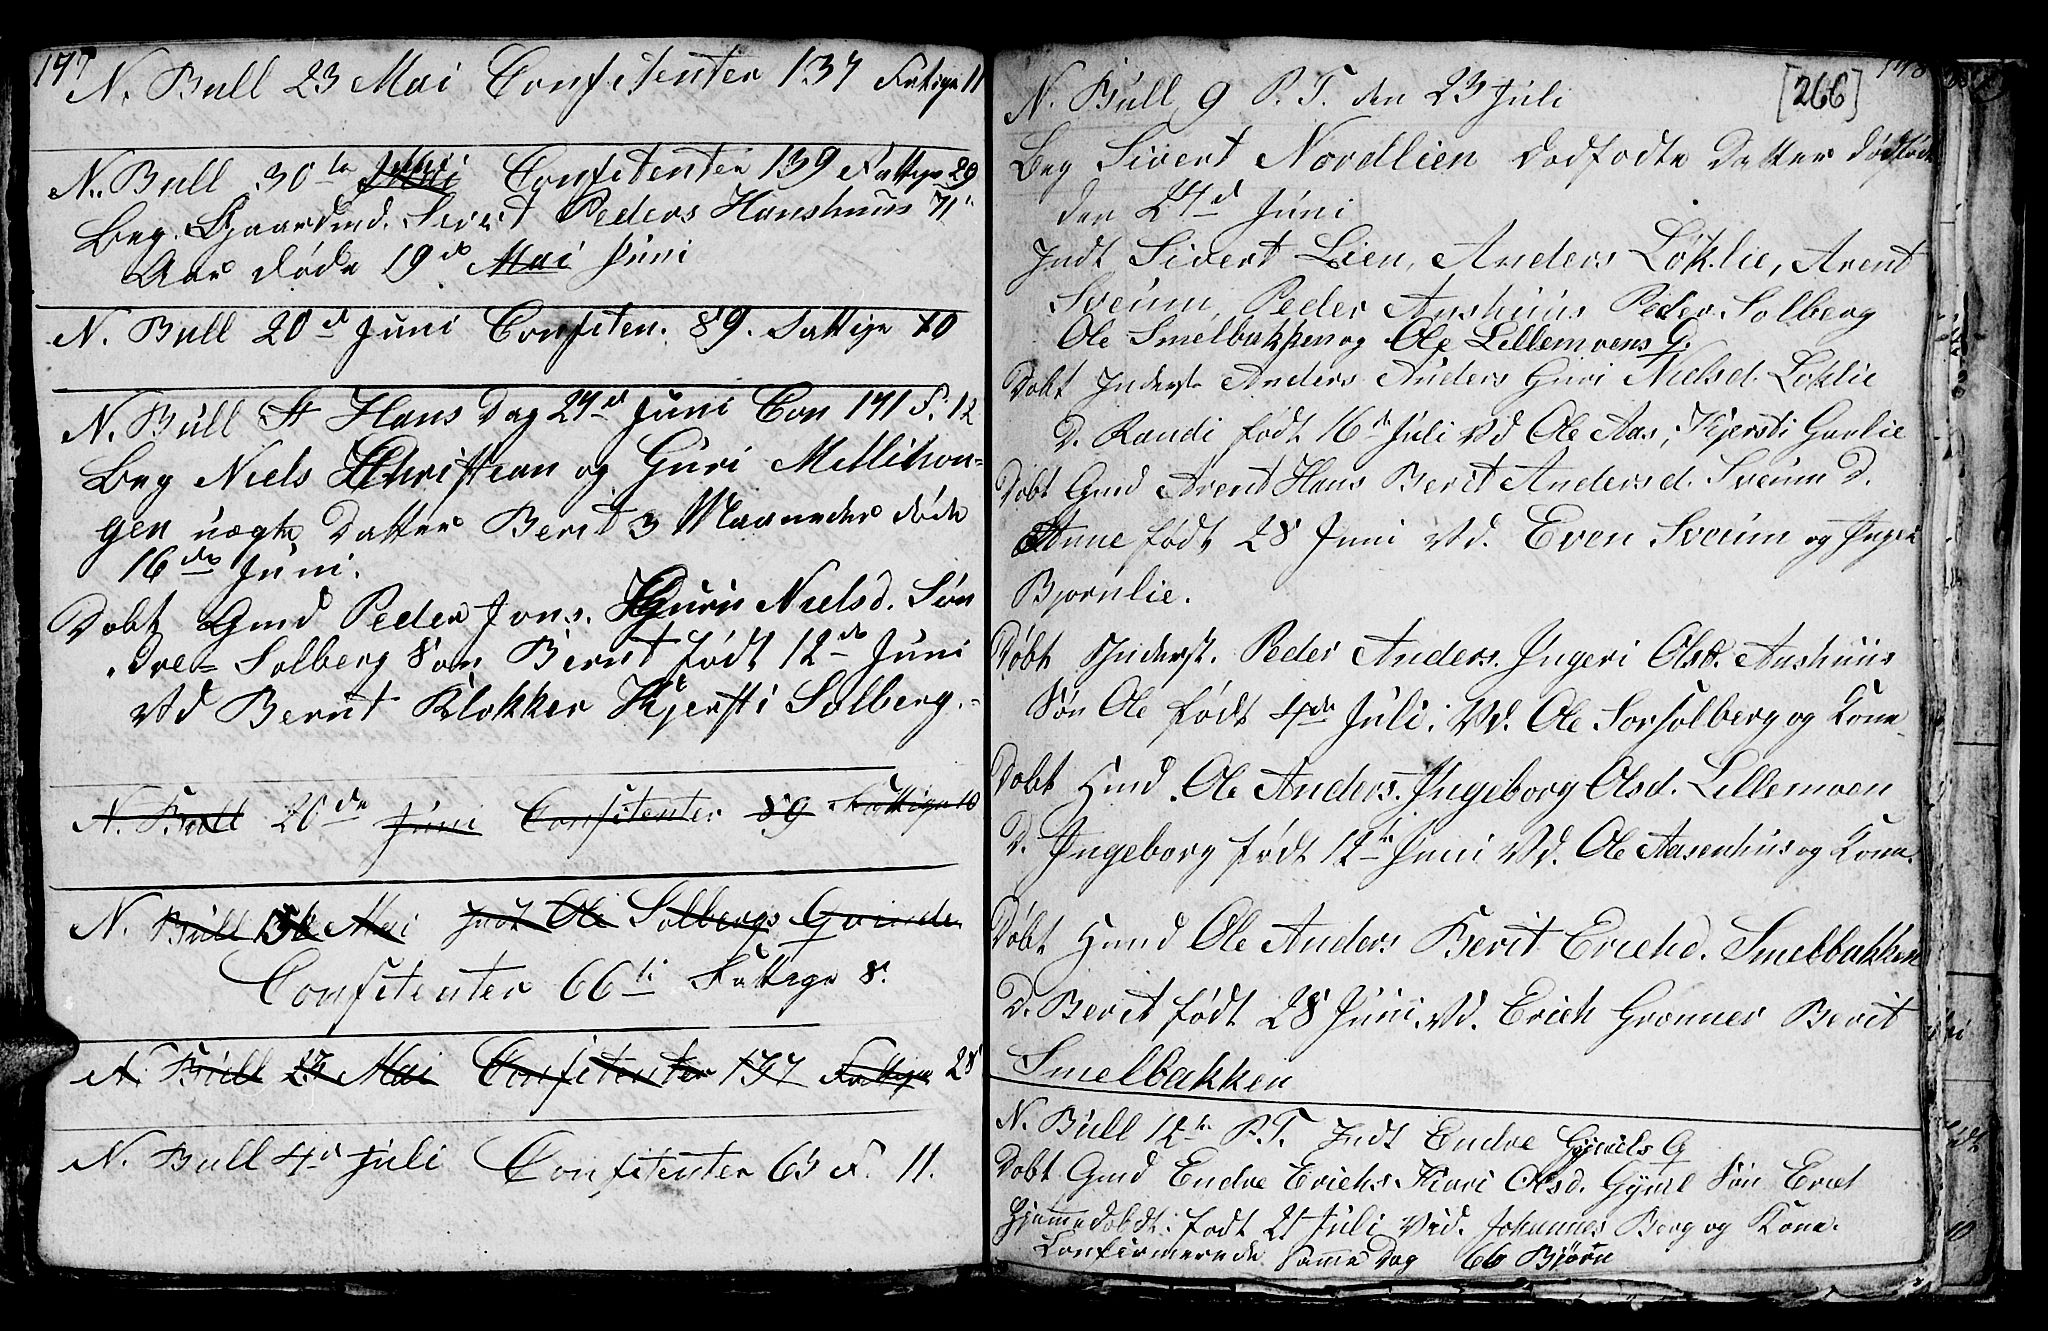 147
N. Bull 23 Mai Confitenter 137 Fattige 11
N. Bull 30te Mai Confitenter 139 Fattige 29
Beg. Gaardmd. Sivert Peders Hanshuus 71
Aar døde 19de Mai Juni
N. Bull 20de Juni Confiten. 89. Fattige 10
N. Bull St Hans Dag 24de Juni Con 141 F. 12
Beg Niels Christian og Guri Mellihon=
gen uegte Datter Berit 3 Maaneder døde
16de Juni.
Dobt Gmd Peder Jons. Guri Nielsd. Søn
dre= Solberg Søn Bernt født 12de Juni
Vd Bernt Klokker Kjersti Solberg.
N. Bull 20de Juni Confitenter 89 Fattige 10
N. Bull Mai Indt Ole Solbergs Qvinde
Confitenter 66ti Fattige 8.
N. Bull 23 Mai Confitenter 137 Fattige 28
N. Bull 4d Juli Confitenter 63 F. 11.
148
[266]
N. Bull 9 P. T. den 23 Juli
Beg Sivert Nordlien Dødfødte Datter dødfødt
den 24d Juni
Indt Sivert Lien, Anders Löklie, Arent
Sveum, Peder Anshuus Peder Solberg
Ole Smelbakken og Ole Lillemoens Q.
Dobt Inderst Anders Anders Guri Nielsd. Löklie
D. Randi født 16de Juli Vd Ole Aas, Kjersti Gaulie
Dobt Gmd Arent Hans Berit Andersd. Sveum D.
Anne født 28 Juni Vd. Even Sveum og Inger
Bjornlie.
Døbt Inderst. Peder Anders. Ingeri Olsd. Anshuus
Søn Ole født 4de Juli. Vd. Ole Sorsolberg og Kone
Dobt Hmd. Ole Anders. Ingeborg Olsd. Lillemoen
D. Ingeborg født 12te Juni Vd. Ole Aasenhus og Kone.
Døbt Hmd Ole Anders Berit Erichd. Smelbakken
D. Berit født 28 Juni. Vd. Erich Gronner Berit
Smelbakken
N. Bull 12te P. T. Indt Endre Gjmels Q
Dobt Gmd Endre Erichs Kari Olsd. Gjmel Søn Erich
Hjemmedobdt. født 21 Juli Ved. Johannes Berg og Kone.
Confirmerede samme Dag 66 Bjørn